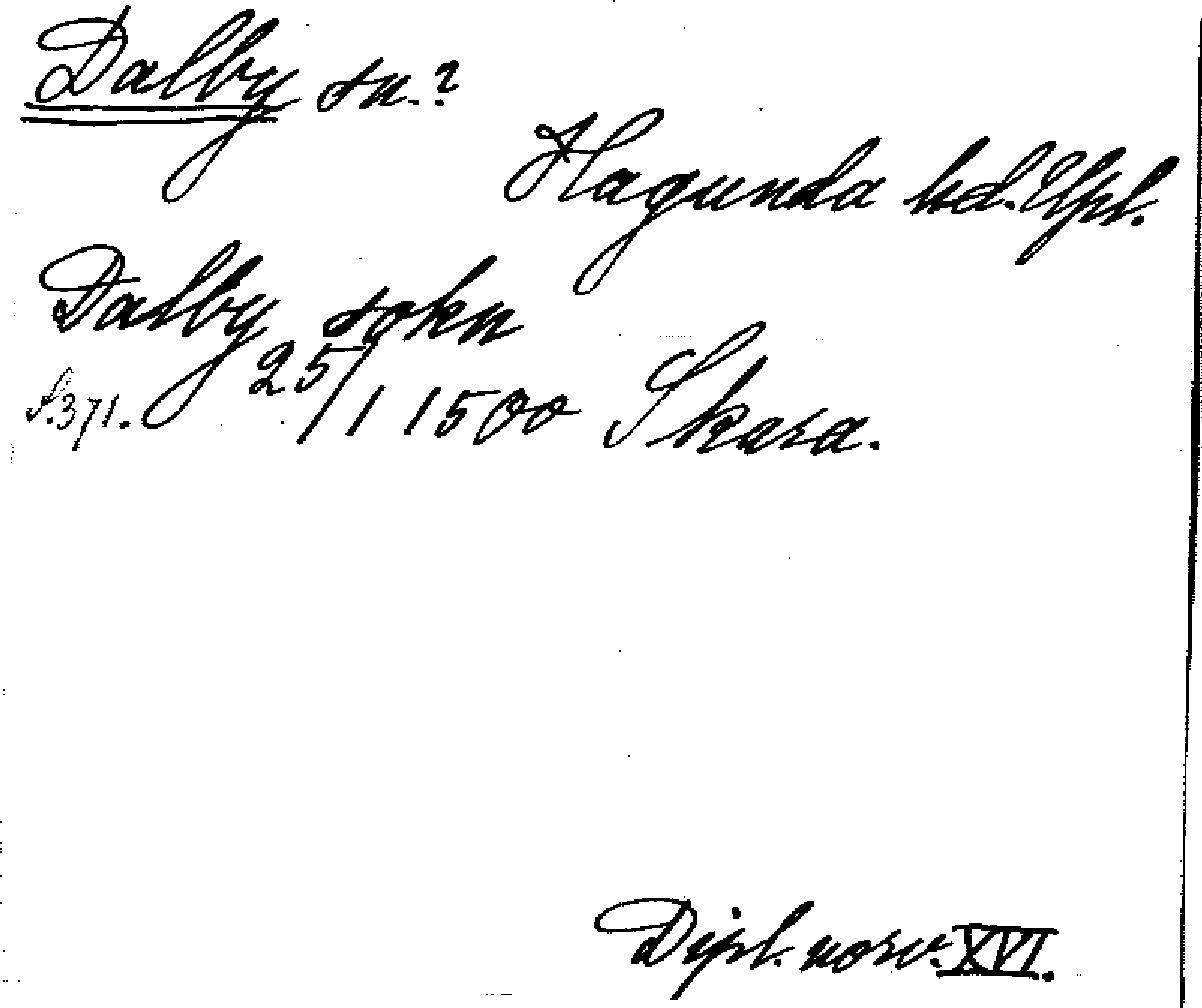 Dalby sn.?
Hagunda hd. Upl.
Dalby sokn
S.371. 25/1 1500 Skara.
Dipl. norv. XVI.